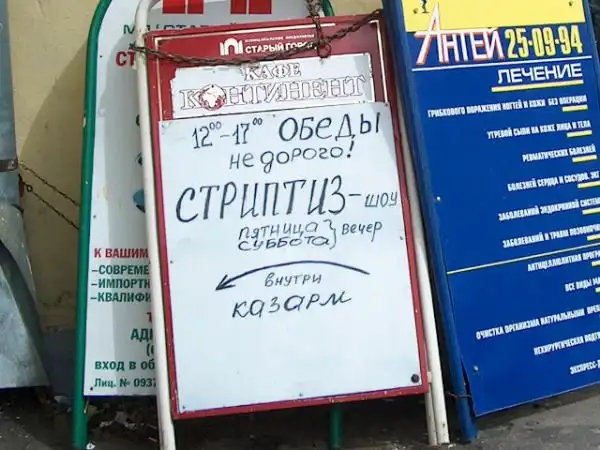 СТАРЫЙ ГОРОД
КАФЕ
КОНТИНЕНТ
12⁰⁰-17⁰⁰ ОБЕДЫ
не дорого!
СТРИПТИЗ-шоу
пятница
суббота } вечер
внутри
казарм
К ВАШИМ
–СОВРЕМЕ
–ИМПОРТН
–КВАЛИФИ
АД
ВХОД В ОБ
Лиц. № 093
АНТЕЙ 25-09-94
ЛЕЧЕНИЕ
ГРИБКОВОГО ПОРАЖЕНИЯ НОГТЕЙ И КОЖИ БЕЗ ОПЕРАЦИИ
УГРЕВОЙ СЫПИ НА КОЖЕ ЛИЦА И ТЕЛА
РЕВМАТИЧЕСКИХ БОЛЕЗНЕЙ
БОЛЕЗНЕЙ СЕРДЦА И СОСУДОВ, ЭКГ
ЗАБОЛЕВАНИЙ ЭНДОКРИННОЙ СИСТЕМ
ЗАБОЛЕВАНИЙ И ТРАВМ ПОЗВОНОЧН
АНТИЦЕЛЛЮЛИТНАЯ ПРОГРА
ВСЕ ВИДЫ МА
ОЧИСТКА ОРГАНИЗМА НАТУРАЛЬНЫМИ ПРЕП
НЕХИРУРГИЧЕСКАЯ ПОДТЯ
ЭКСПРЕСС-Д